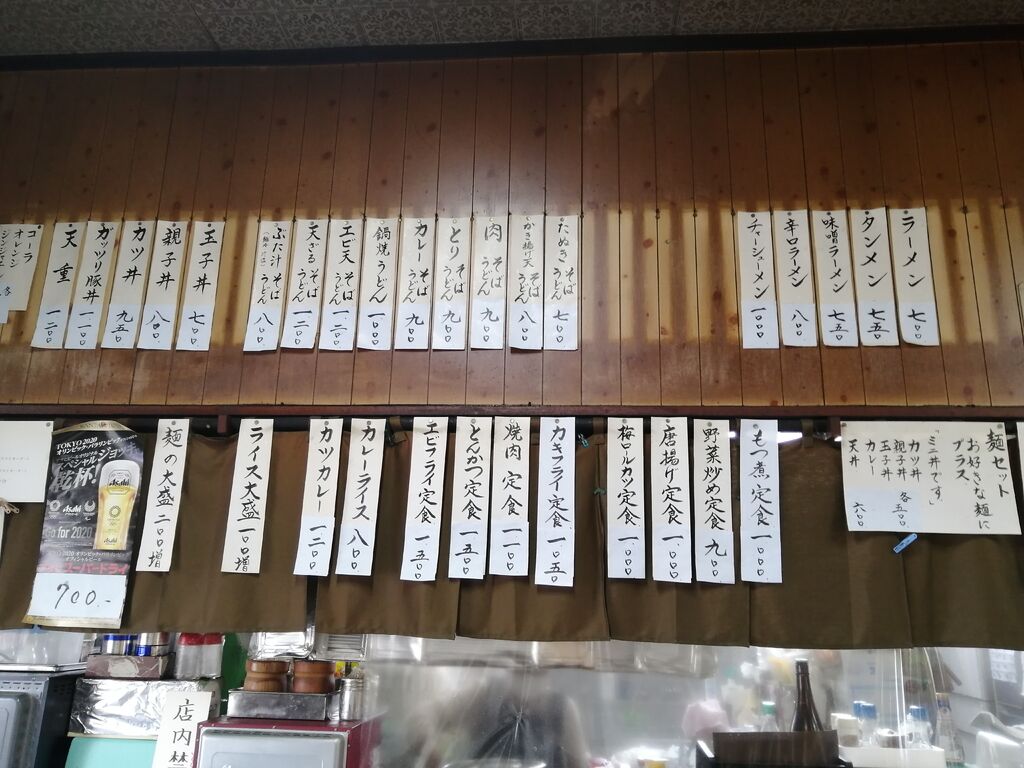 ラーメン 七〇〇
タンメン 七五〇
味噌ラーメン 七五〇
辛口ラーメン 八〇〇
チャーシューメン 一〇〇〇
たぬき そば うどん 七〇〇
かき揚げ天 そば うどん 八〇〇
肉 そば うどん 九〇〇
とり そば うどん 九〇〇
カレー そば うどん 九〇〇
鍋焼うどん 一〇〇〇
エビ天 そば うどん 一二〇〇
天ざる そば うどん 一二〇〇
ぶた汁 そば うどん 八〇〇
玉子丼 七〇〇
親子丼 八〇〇
カツ丼 九五〇
ガッツリ豚丼 一一〇〇
天重 一二〇〇
コーラ
オレンジ
ジンジャエール 各
麺セット
お好きな麺に
プラス
「ミニ丼です」
カツ丼
親子丼
玉子丼
カレー
各五〇〇
天丼 六〇〇
もつ煮定食 一〇〇〇
野菜炒め定食 九〇〇
唐揚げ定食 一〇〇〇
梅ロールカツ定食 一〇〇〇
カキフライ定食 一一五〇
焼肉定食 一一〇〇
とんかつ定食 一一五〇
エビフライ定食 一一五〇
カレーライス 八〇〇
カツカレー 一二〇〇
ライス大盛 一〇〇増
麺の大盛 二〇〇増
TOKYO 2020
オリンピック・パラリンピック
スペシャルジョッキ
乾杯!
Asahi
for 2020
TOKYO 2020 オリンピック・パラリンピック
オフィシャルビール
スーパードライ
700.-
店内禁